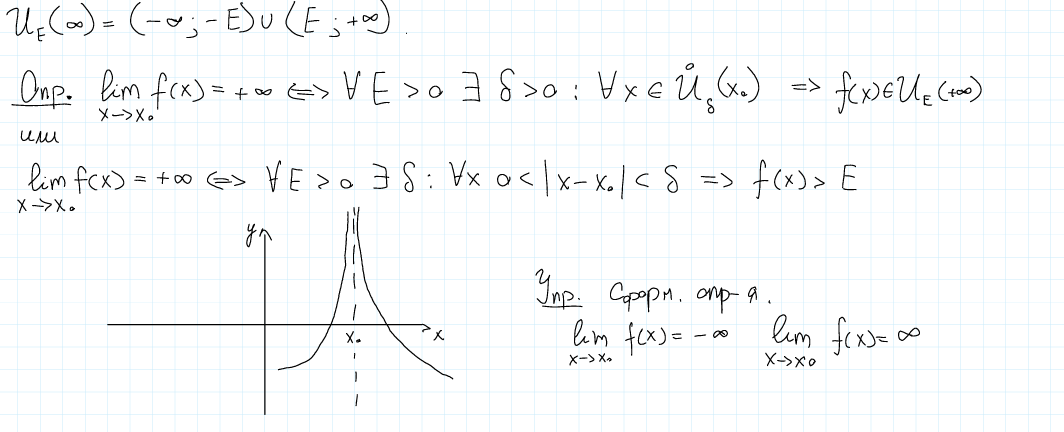 U_E(∞) = (-∞; -E) ∪ (E; +∞).
Опр. lim_{x→x₀} f(x) = +∞ <=> ∀ E > 0 ∃ δ > 0 : ∀ x ∈ Ů_δ(x₀) => f(x) ∈ U_E(+∞)
или
lim_{x→x₀} f(x) = +∞ <=> ∀ E > 0 ∃ δ : ∀x 0 < |x - x₀| < δ => f(x) > E
y
Упр. Сформ. опр-я.
x₀ x
lim_{x→x₀} f(x) = -∞ lim_{x→x₀} f(x) = ∞